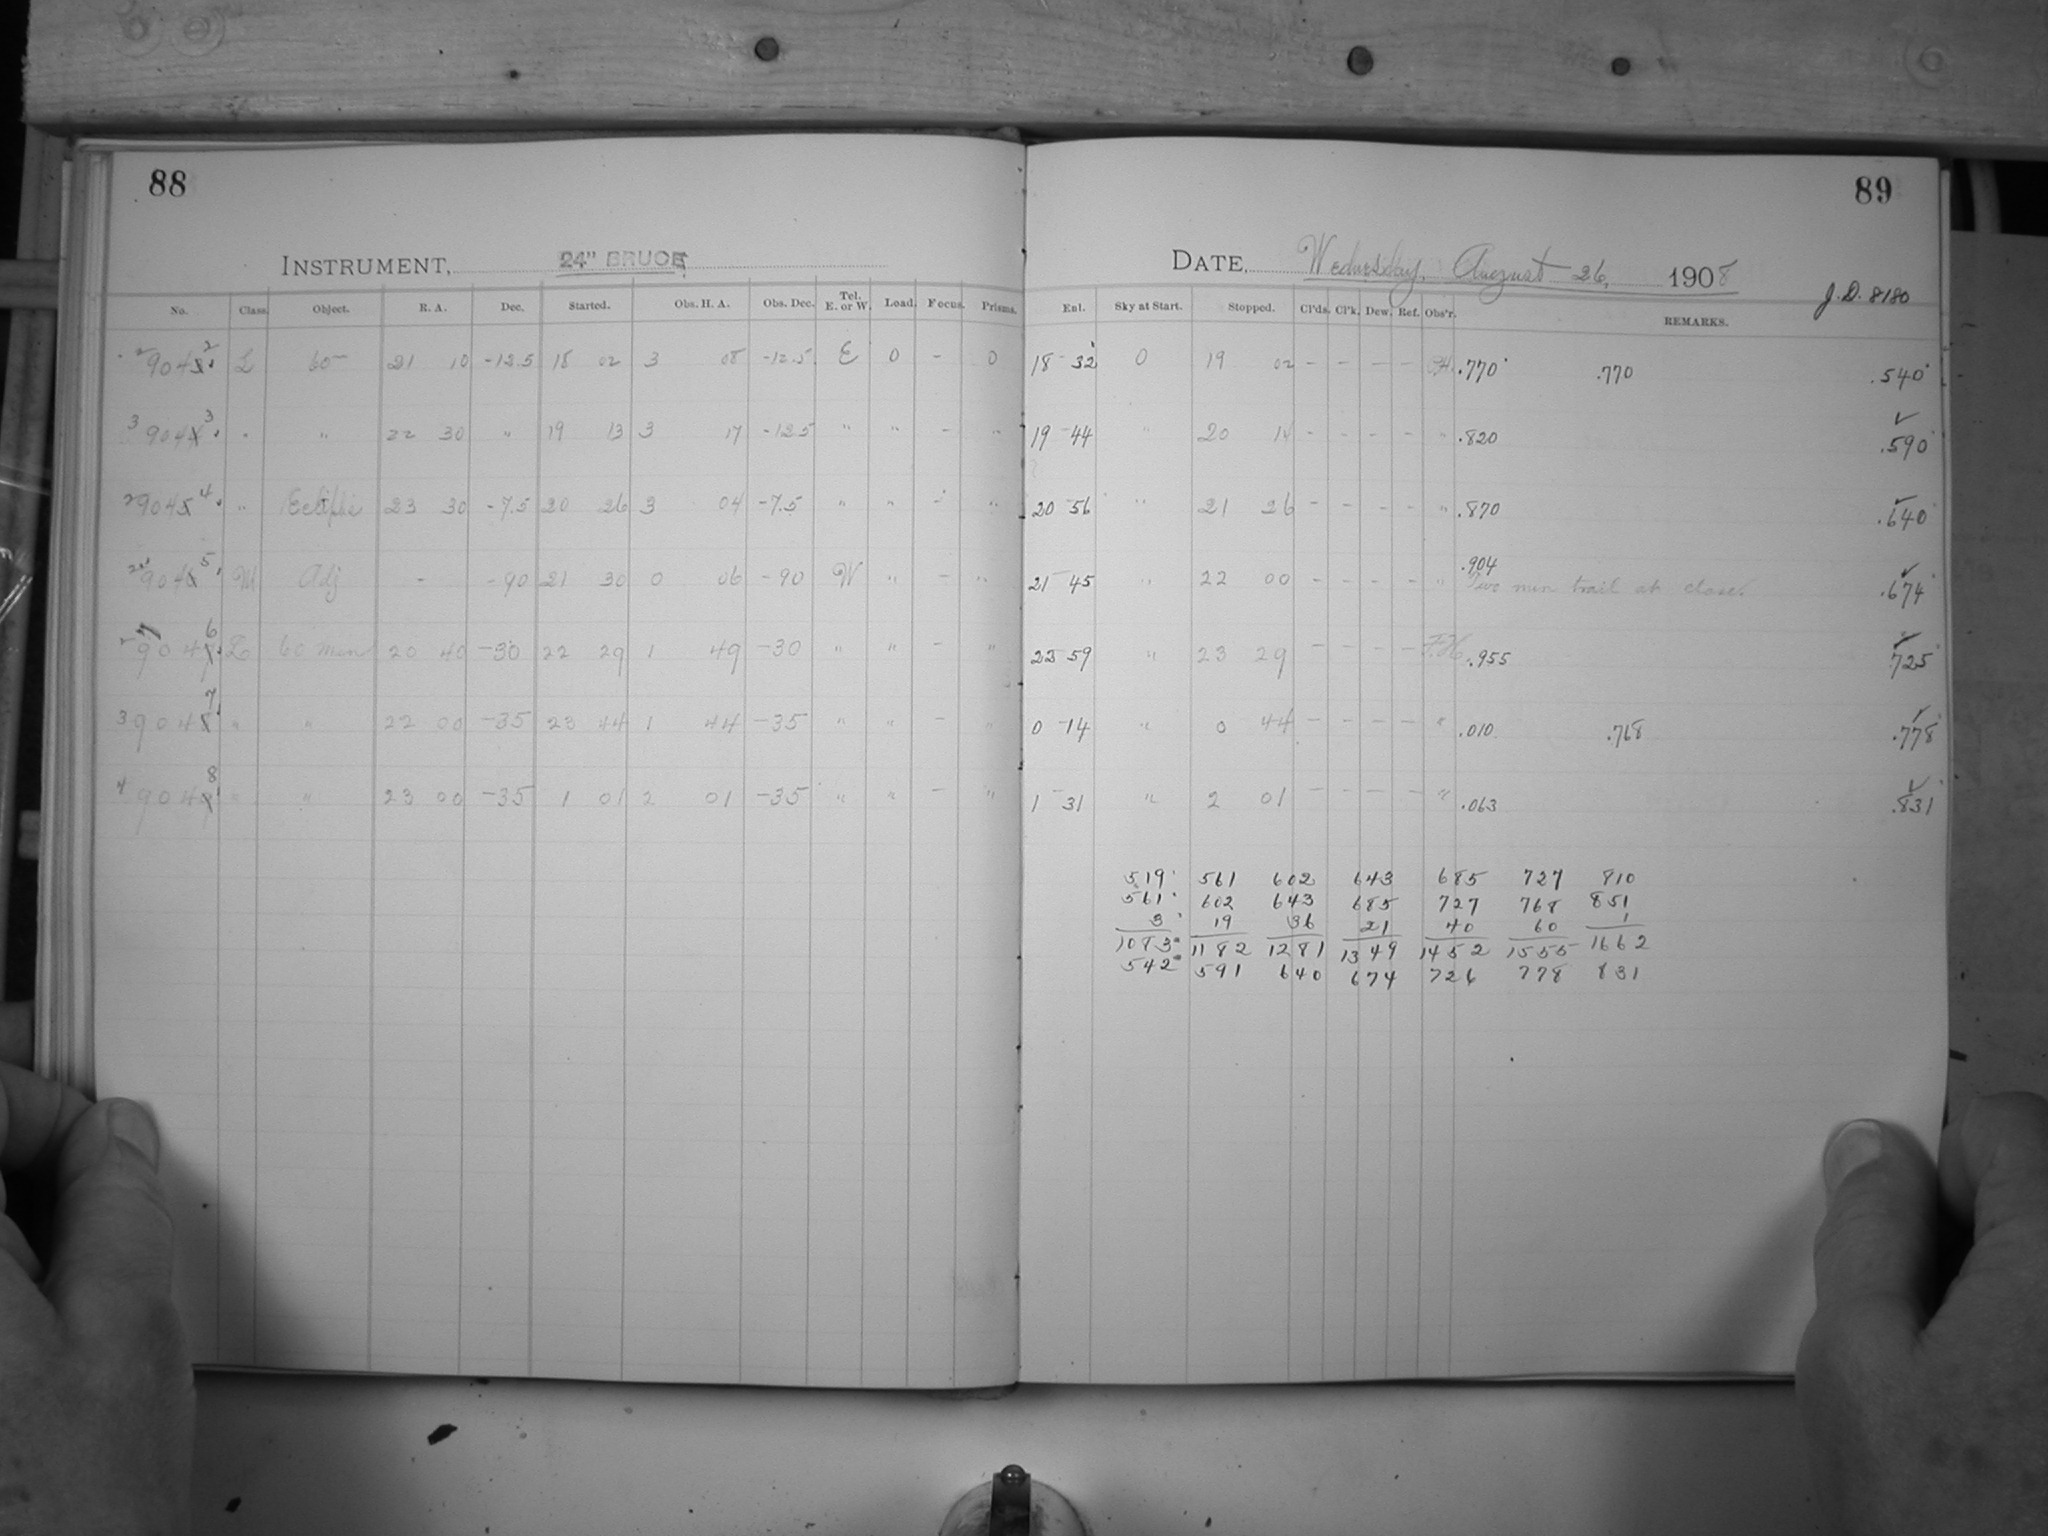 88
INSTRUMENT, 24" BRUCE
No. Class. Object. R. A. Dec. Started. Obs. H. A. Obs. Dec. Tel. E. or W. Load. Focus. Prisms.
9045 2 L 60 21 10 -12.5 18 02 3 08 -12.5 E 0 - 0
9045 3 " " 22 30 " 19 13 3 17 -12.5 " " - "
9045 4 " Ecliptic 23 30 -7.5 20 26 3 04 -7.5 " " - "
9045 5 M Adj - -90 21 30 0 06 -90 W " - "
904 6 L 60 min 20 40 -30 22 29 1 49 -30 " " - "
904 7 " " 22 00 -35 23 44 1 44 -35 " " - "
904 8 " " 23 00 -35 1 01 2 01 -35 " " - "
89
DATE, Wednesday, August 26, 1908
J.D. 8180
Enl. Sky at Start. Stopped. Cl'ds. Cl'k. Dew. Ref. Obs'r. REMARKS.
18 32 0 19 02 - - - - .770 .770 .540
19 44 " 20 14 - - - - " .820 .590
20 56 " 21 26 - - - - " .870 .640
21 45 " 22 00 - - - - " .904 Two min trail at close. .674
23 59 " 23 29 - - - - F.H. .955 .725
0 14 " 0 44 - - - - " .010 .768 .778
1 31 " 2 01 - - - - " .063 .831
519 561 602 643 685 727 810
561 602 643 685 727 768 851
3 19 36 21 40 60 1
1083 1182 1281 1349 1452 1555 1662
542 591 640 674 726 778 831